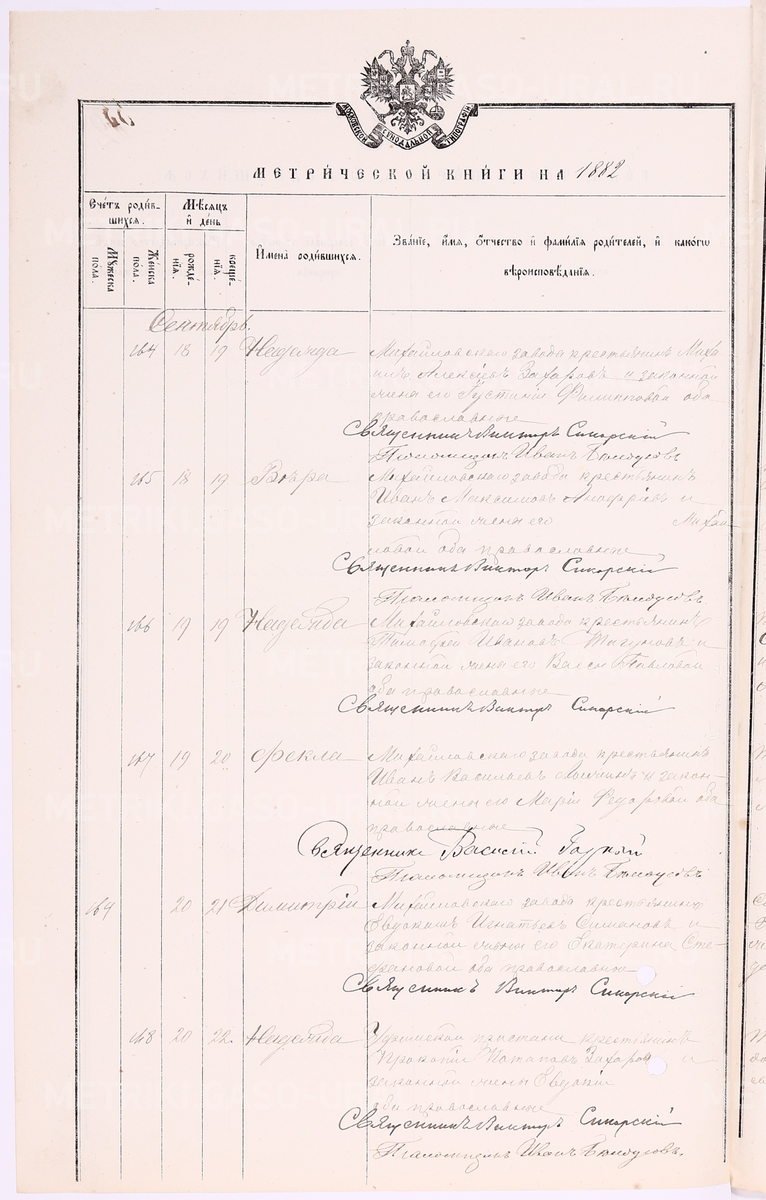 МОСКОВСКОЙ СѴНОДАЛЬНОЙ ТИПОГРАФІИ
МЕТРИ́ЧЕСКОЙ КНИ́ГИ НА 1882
Сче́тъ роди́в-
шихся.
Мѣ́сяцъ
и҆ де́нь
Му́жеска
по́ла.
Же́нска
по́ла.
рожде́-
нїѧ.
креще́-
нїѧ.
И҆мена̀ роди́вшихся.
Зва́нїе, и҆́мѧ, ѻ҆́тчество и҆ фамѝлїѧ роди́телей, и҆ како́гѡ
вѣроисповѣ́данїѧ.
Сентябрь.
164 18 19 Надежда Михайловскаго завода крестьянинъ Миха
илъ Алексѣевъ Захаровъ и законной
жена его Іустинія Филиппова оба
православные
Священникъ Викторъ Сикорскій
Псаломщикъ Иванъ
165 18 19 Вѣра Михайловскаго завода крестьянинъ
Иванъ Максимовъ и
законной жена его Михай
ловой оба православные
Священникъ Викторъ Сикорскій
Псаломщикъ Иванъ
166 19 19 Надежда Михайловскаго завода крестьянинъ
Тимофей Ивановъ и
законной жена его Васса Павловой
оба православные
Священникъ Викторъ Сикорскій
167 19 20 Фекла Михайловскаго завода крестьянинъ
Иванъ Васильевъ и закон-
ной жена его Марія Федоровой оба
православные
Священникъ Василій
Псаломщикъ Иванъ
169 20 21 Димитрій Михайловскаго завода крестьянинъ
Евдокимъ Игнатьевъ Симановъ и
законной жена его Екатерина Сте-
фановой оба православные
Священникъ Викторъ Сикорскій
168 20 22. Надежда Уфимской пристани крестьянинъ
Прокопій Потаповъ Захаров и
законной жены Евдокіи
оба православные
Священникъ Викторъ Сикорскій
Псаломщикъ Иванъ